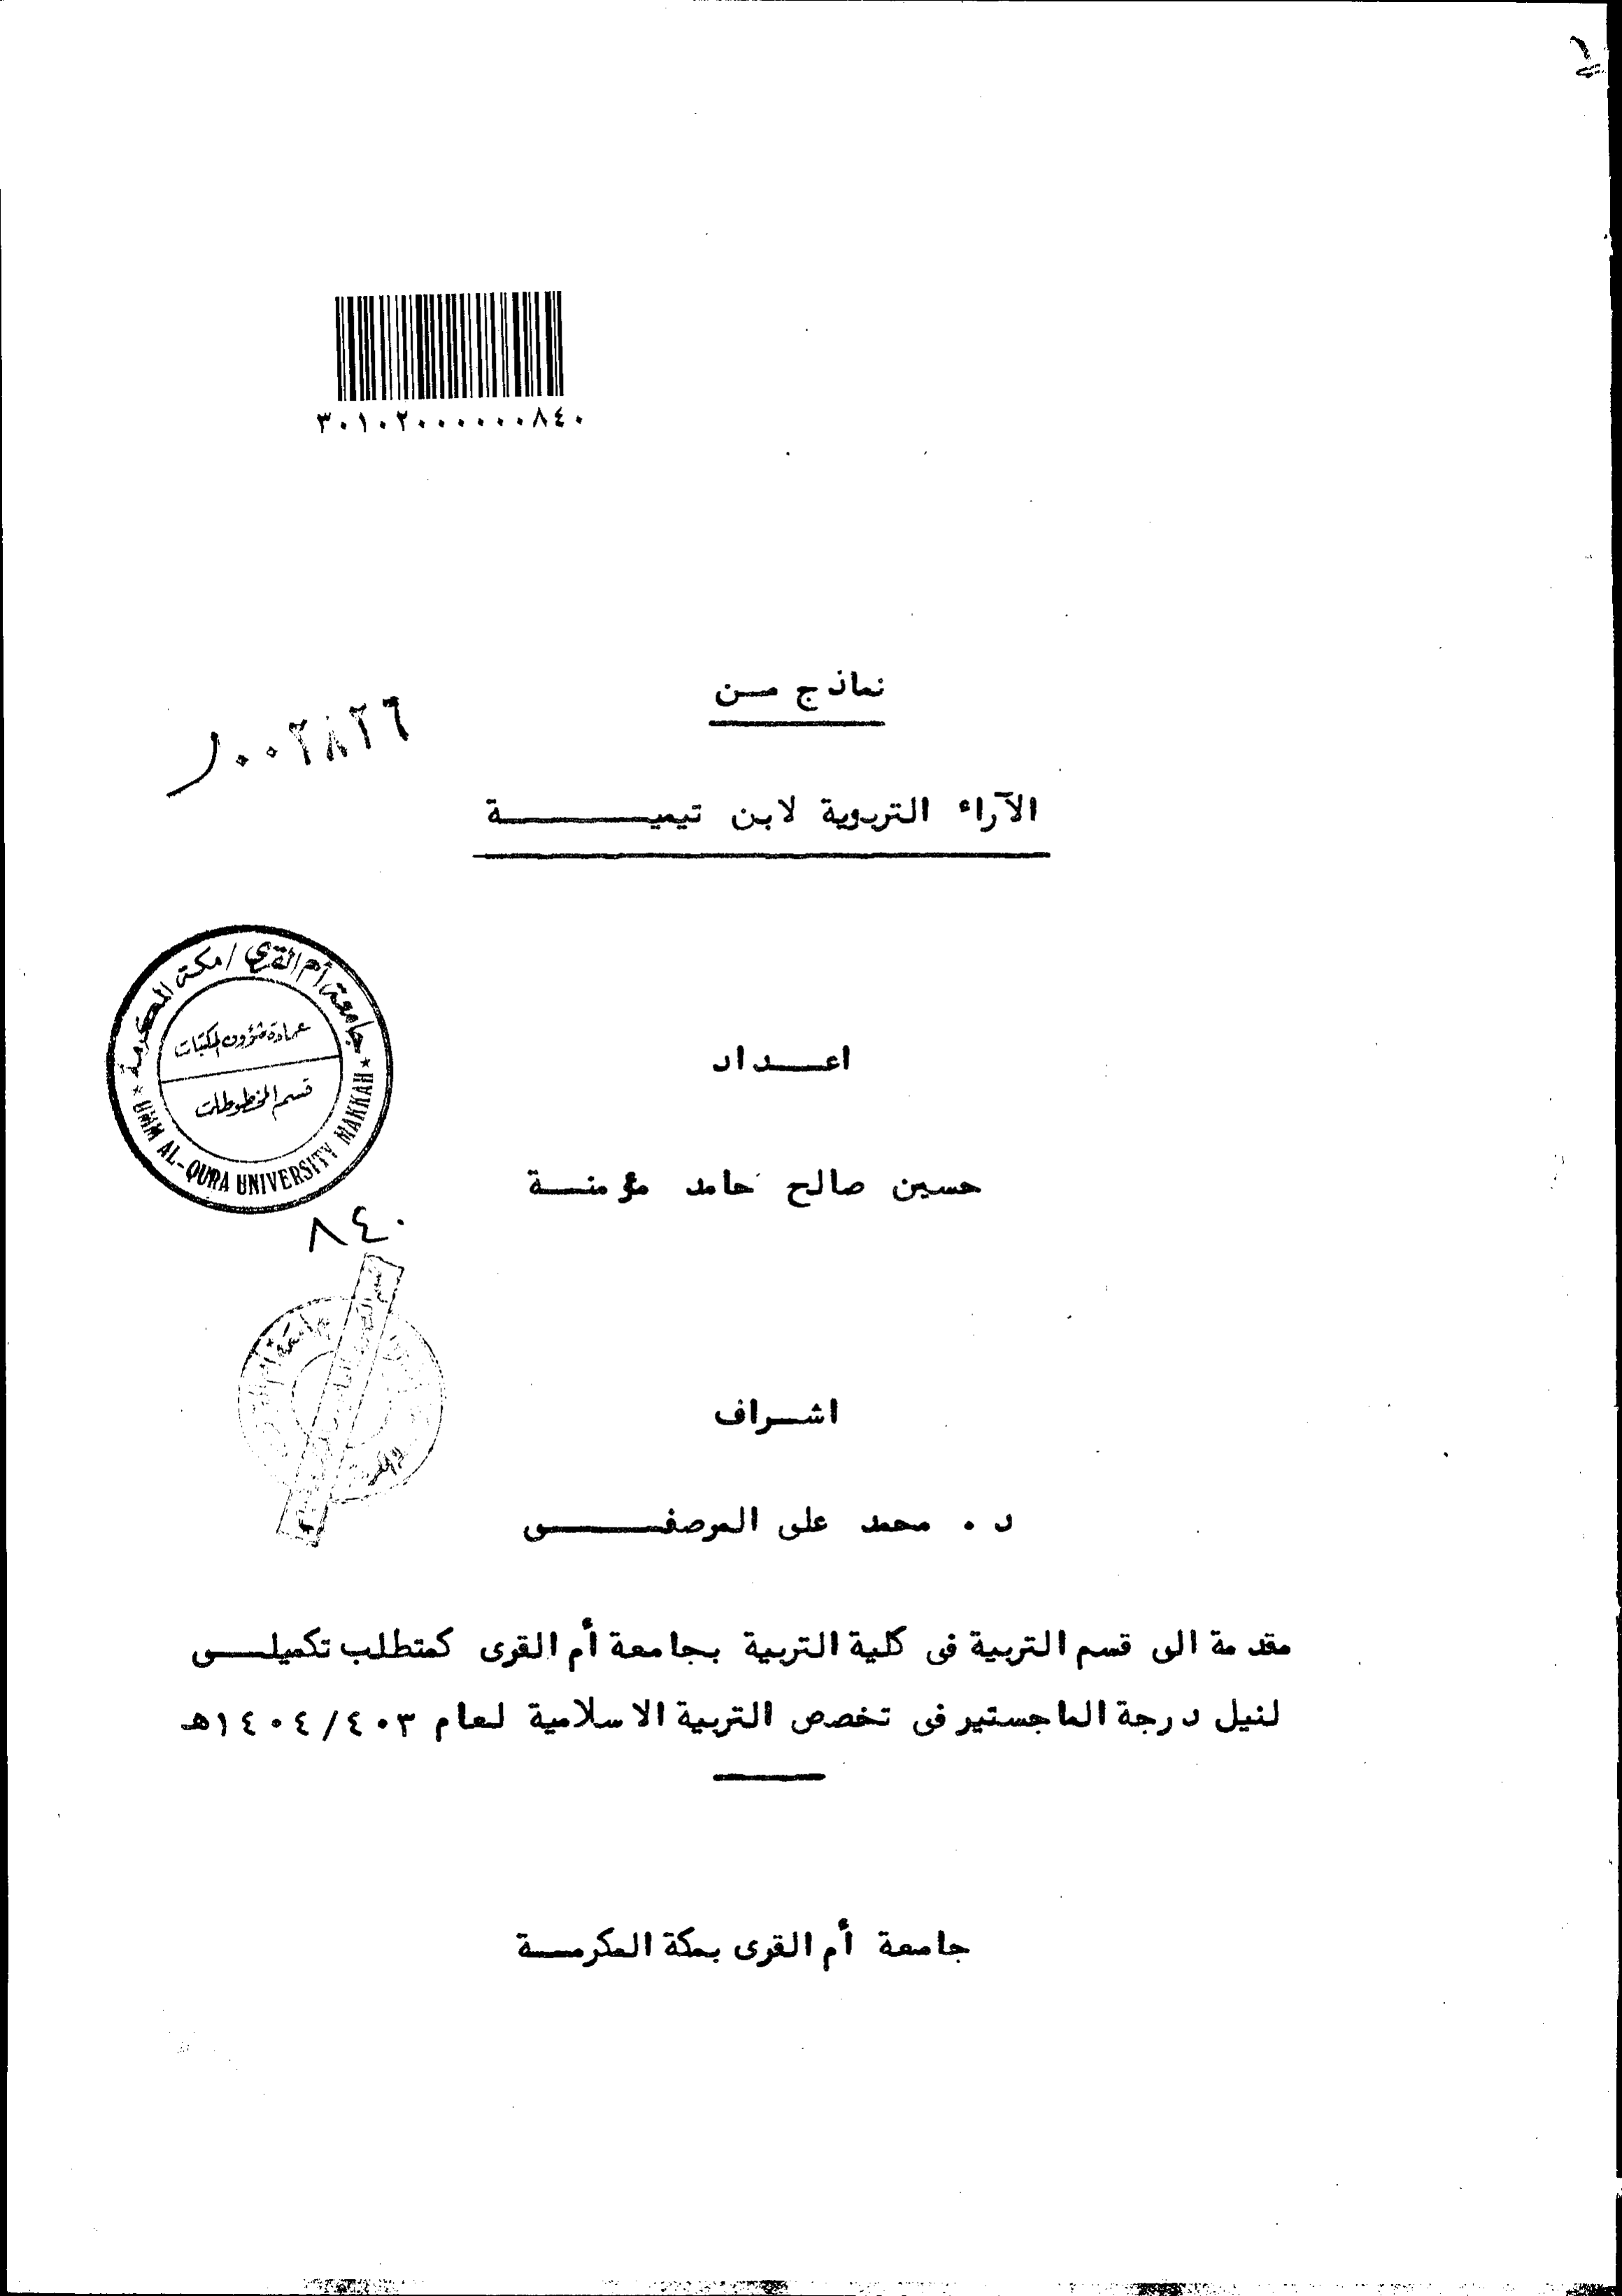 ٣٠١٠٢٠٠٠٠٠٠٨٤٠
نماذج من
٠٠٢٨٢٦
الآراء التربوية لابن تيمية
جامعة أم القرى / مكة المكرمة
عمادة شؤون المكتبات
قسم المخطوطات
UMM AL-QURA UNIVERSITY MAKKAH
اعداد
حسين صالح حامد مؤمنة
٨٤٠
اشراف
د . محمد على المرصفى
مقدمة الى قسم التربية فى كلية التربية بجامعة أم القرى كمتطلب تكميلى
لنيل درجة الماجستير فى تخصص التربية الاسلامية لعام ٤٠٣/١٤٠٤هـ
جامعة أم القرى بمكة المكرمة